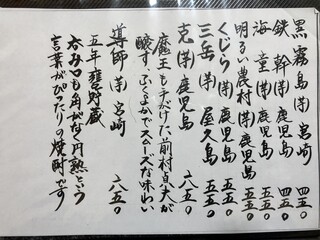 黒霧島(芋)宮崎 四五〇
鉄幹(芋)鹿児島 四五〇
海童(芋)鹿児島 五五〇
明るい農村(芋)鹿児島 五五〇
くじら(芋)鹿児島 五五〇
三岳(芋)屋久島 五五〇
克(芋)鹿児島 六五〇
魔王も手がけた前村貞夫が
醸す、ふくよかでスムーズな味わい
導師(芋)宮崎 六五〇
五年甕貯蔵
呑み口も角がなく円熟という
言葉がぴったりの焼酎です